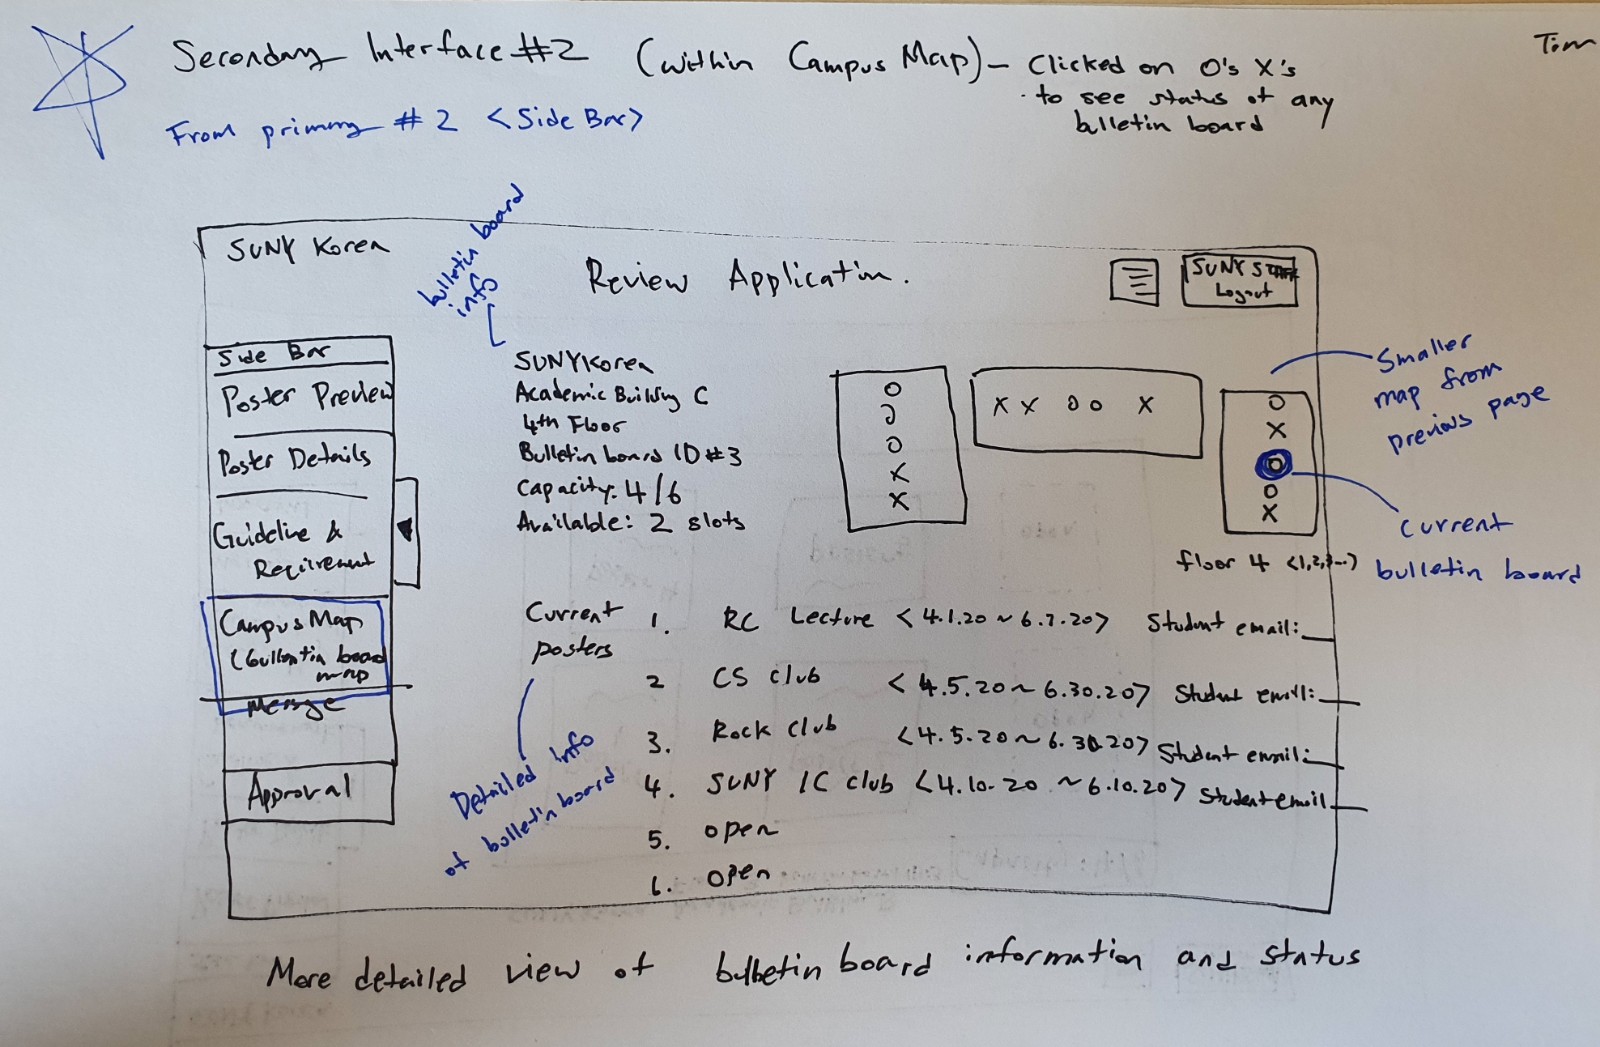 Secondary Interface #2 (within Campus Map) - Clicked on O's X's
to see status of any
bulletin board
Tim
From primary #2 <Side Bar>
bulletin board
info
SUNY Korea
Review Application.
SUNY Staff
Logout
Side Bar
Poster Preview
Poster Details
Guideline &
Requirement
Campus Map
(bulletin board
map
Message
Approval
SUNY Korea
Academic Building C
4th Floor
Bulletin board ID #3
Capacity: 4/6
Available: 2 slots
O
O
O
X
X
X X O O X
O
X
O
O
X
Smaller
map from
previous page
current
bulletin board
floor 4 <1,2,3...>
Current
posters
1. RC Lecture <4.1.20 ~ 6.7.20> Student email:
2 CS club <4.5.20 ~ 6.30.20> Student email:
3. Rock club <4.5.20 ~ 6.30.20> Student email:
4. SUNY IC club <4.10.20 ~ 6.10.20> Student email
5. open
6. open
Detailed info
of bulletin board
More detailed view of bulletin board information and status